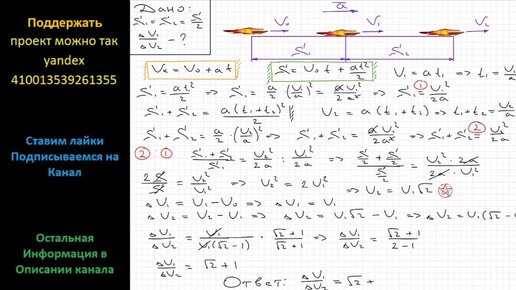 Поддержать
проект можно так
yandex
410013539261355
Ставим лайки
Подписываемся на
Канал
Остальная
Информация в
Описании канала
Дано:
S₁ = S₂ = S/2
ΔV₁/ΔV₂ - ?
a
V₀ V₁ V₂
S₁ S₂
Vк = V₀ + at
S = V₀t + at²/2
V₁ = at₁ => t₁ = V₁/a
S₁ = at₁²/2 => S₁ = a/2 · (V₁/a)² = aV₁²/2a² => S₁ = V₁²/2a ①
S₁ + S₂ = a(t₁+t₂)²/2
V₂ = a(t₁+t₂) => t₁+t₂ = V₂/a
S₁ + S₂ = a/2 · (V₂/a)² => S₁ + S₂ = aV₂²/2a² => S₁ + S₂ = V₂²/2a ②
② : ① (S₁+S₂)/S₁ = V₂²/2a : V₁²/2a => (S/2 + S/2)/(S/2) = V₂² · 2a/2a · V₁²
2S/S = V₂²/V₁² => V₂² = 2V₁² => V₂ = V₁√2
ΔV₁ = V₁ - V₀ => ΔV₁ = V₁
ΔV₂ = V₂ - V₁ => ΔV₂ = V₁√2 - V₁ => ΔV₂ = V₁(√2-1)
ΔV₁/ΔV₂ = V₁/V₁(√2-1) · (√2+1)/(√2+1) => ΔV₁/ΔV₂ = (√2+1)/(2-1)
ΔV₁/ΔV₂ = √2 + 1
Ответ: ΔV₁/ΔV₂ = √2 +